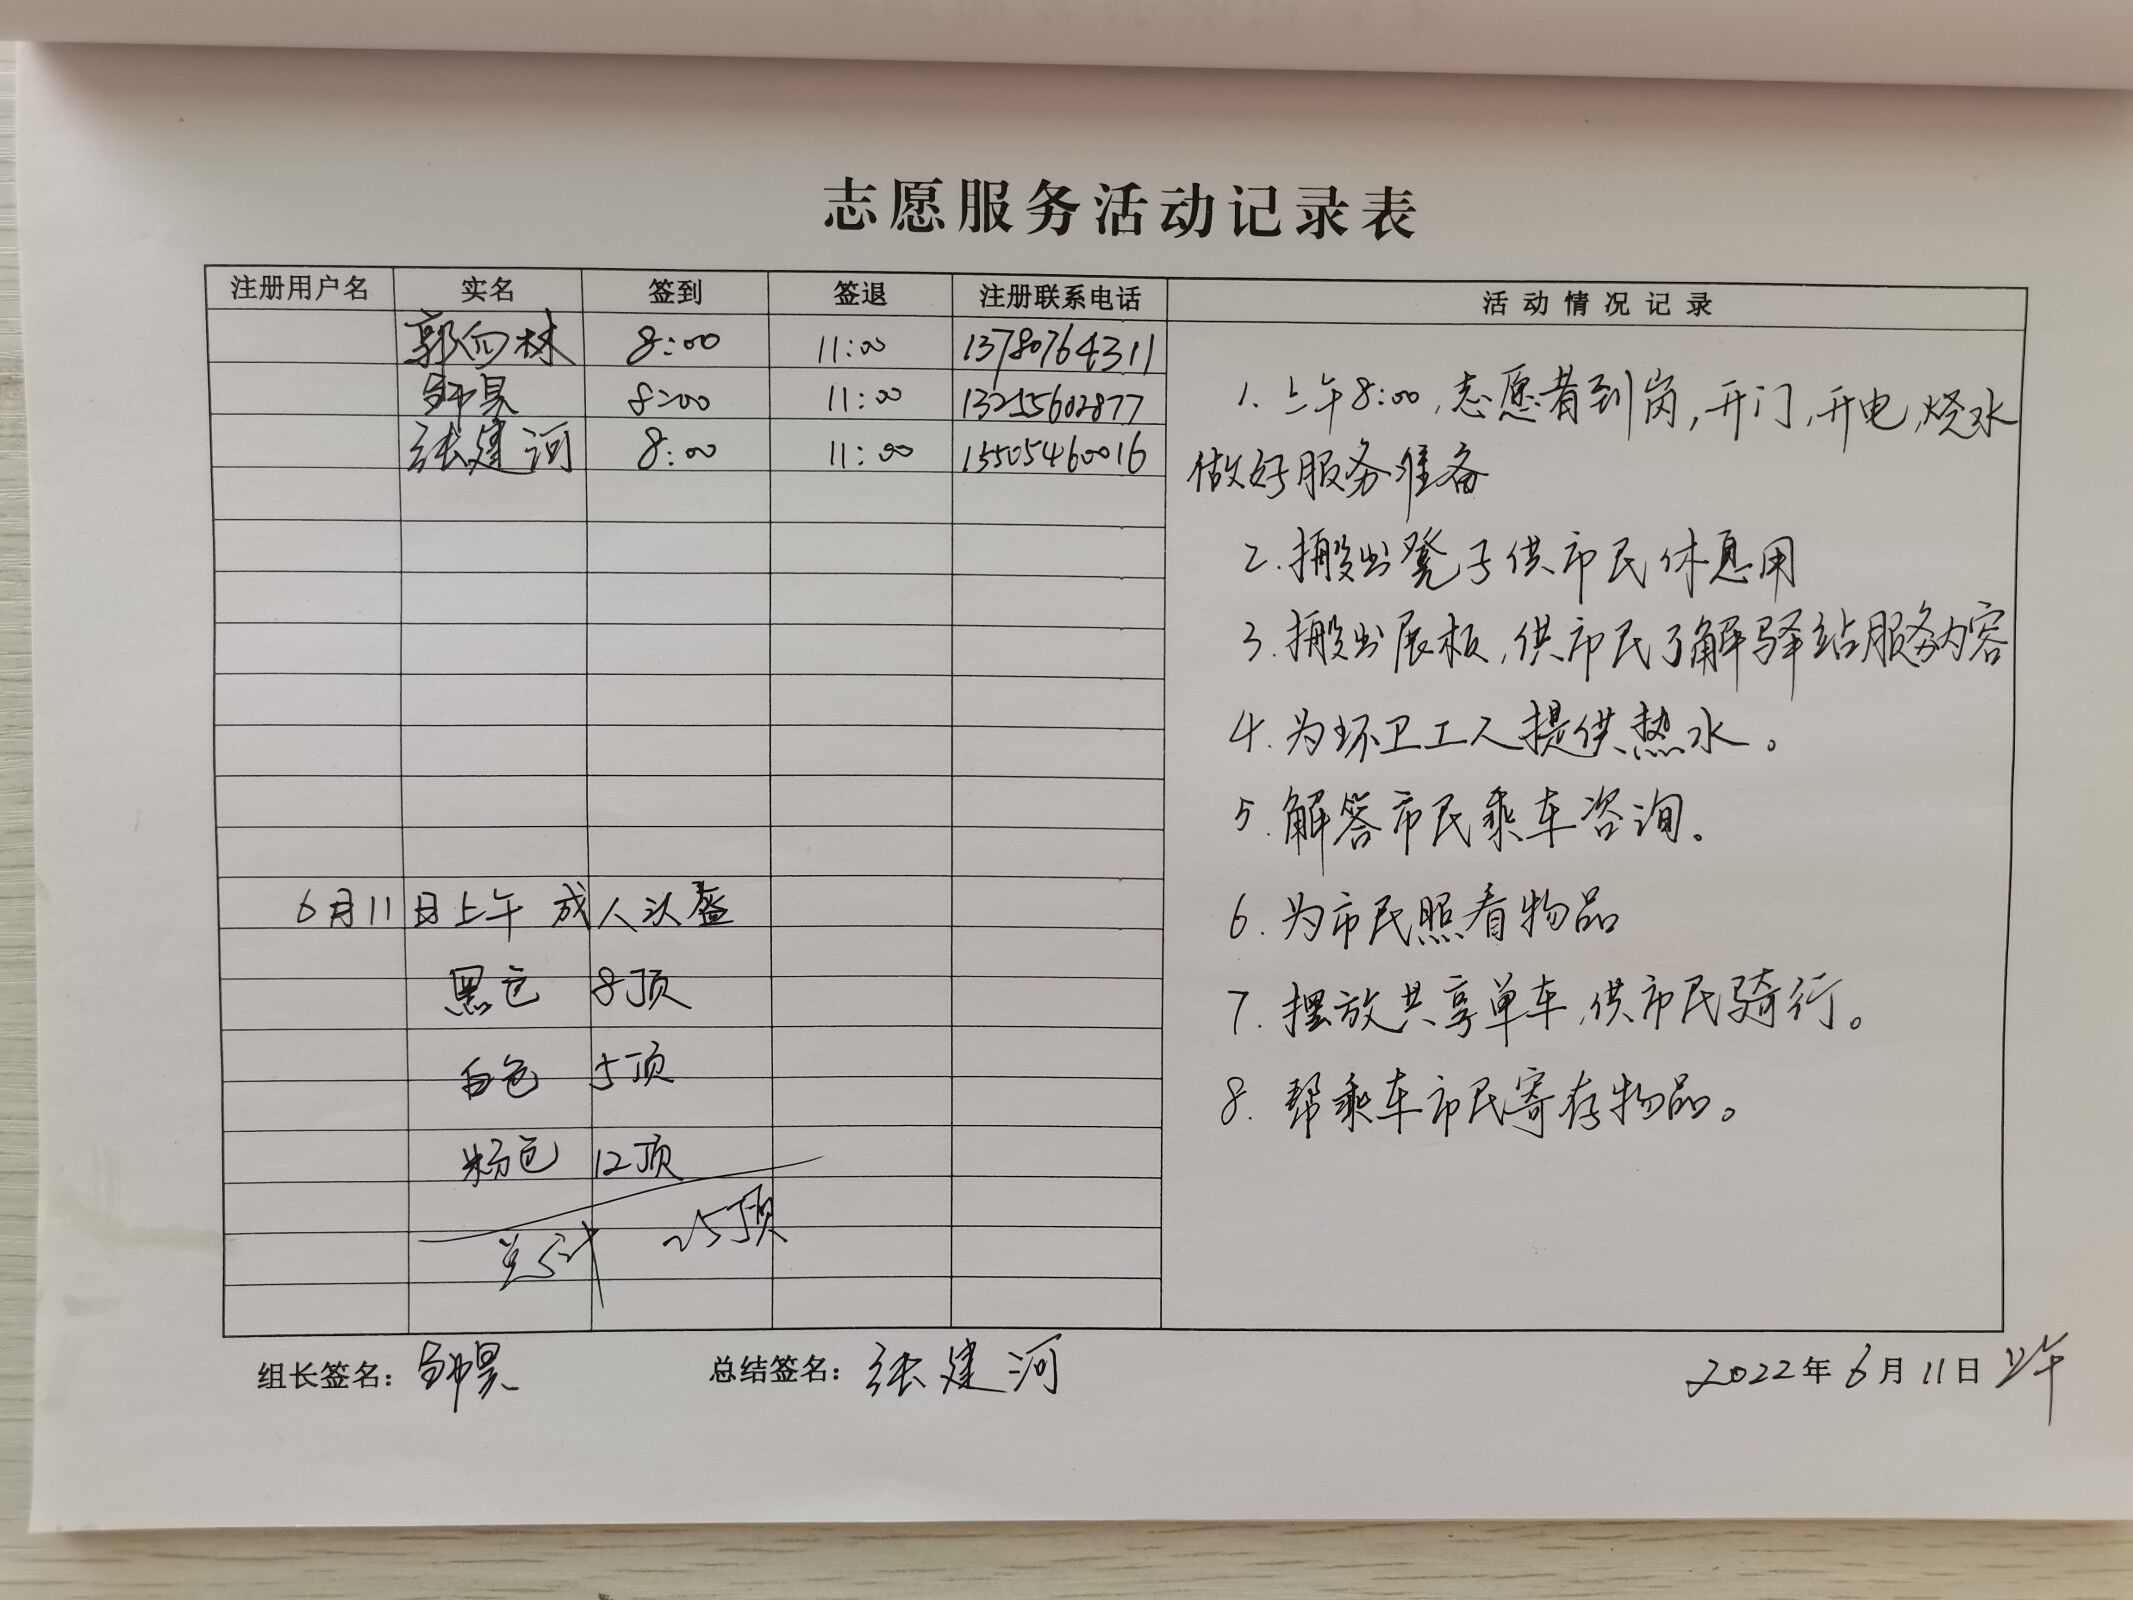 志愿服务活动记录表
注册用户名 实名 签到 签退 注册联系电话 活动情况记录
郭向林 8:00 11:00 13780764311
8:00 11:00 13255602877
张建河 8:00 11:00 15505460016
6月11日上午 成人头盔
黑色 8顶
白色 5顶
粉色 12顶
总计 25顶
1. 上午8:00,志愿者到岗,开门,开电,烧水
做好服务准备
2. 搬出凳子供市民休息用
3. 搬出展板,供市民了解驿站服务内容
4. 为环卫工人提供热水。
5. 解答市民乘车咨询。
6. 为市民照看物品
7. 摆放共享单车,供市民骑行。
8. 帮乘车市民寄存物品。
组长签名: 总结签名: 张建河 2022年6月11日上午